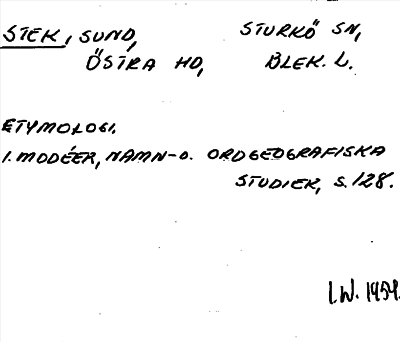 STEK, SUND, STURKÖ SN,
ÖSTRA HD, BLEK. L.
ETYMOLOGI.
I. MODÉER, NAMN- O. ORDGEOGRAFISKA
STUDIER, S. 128.
I.W. 1959.